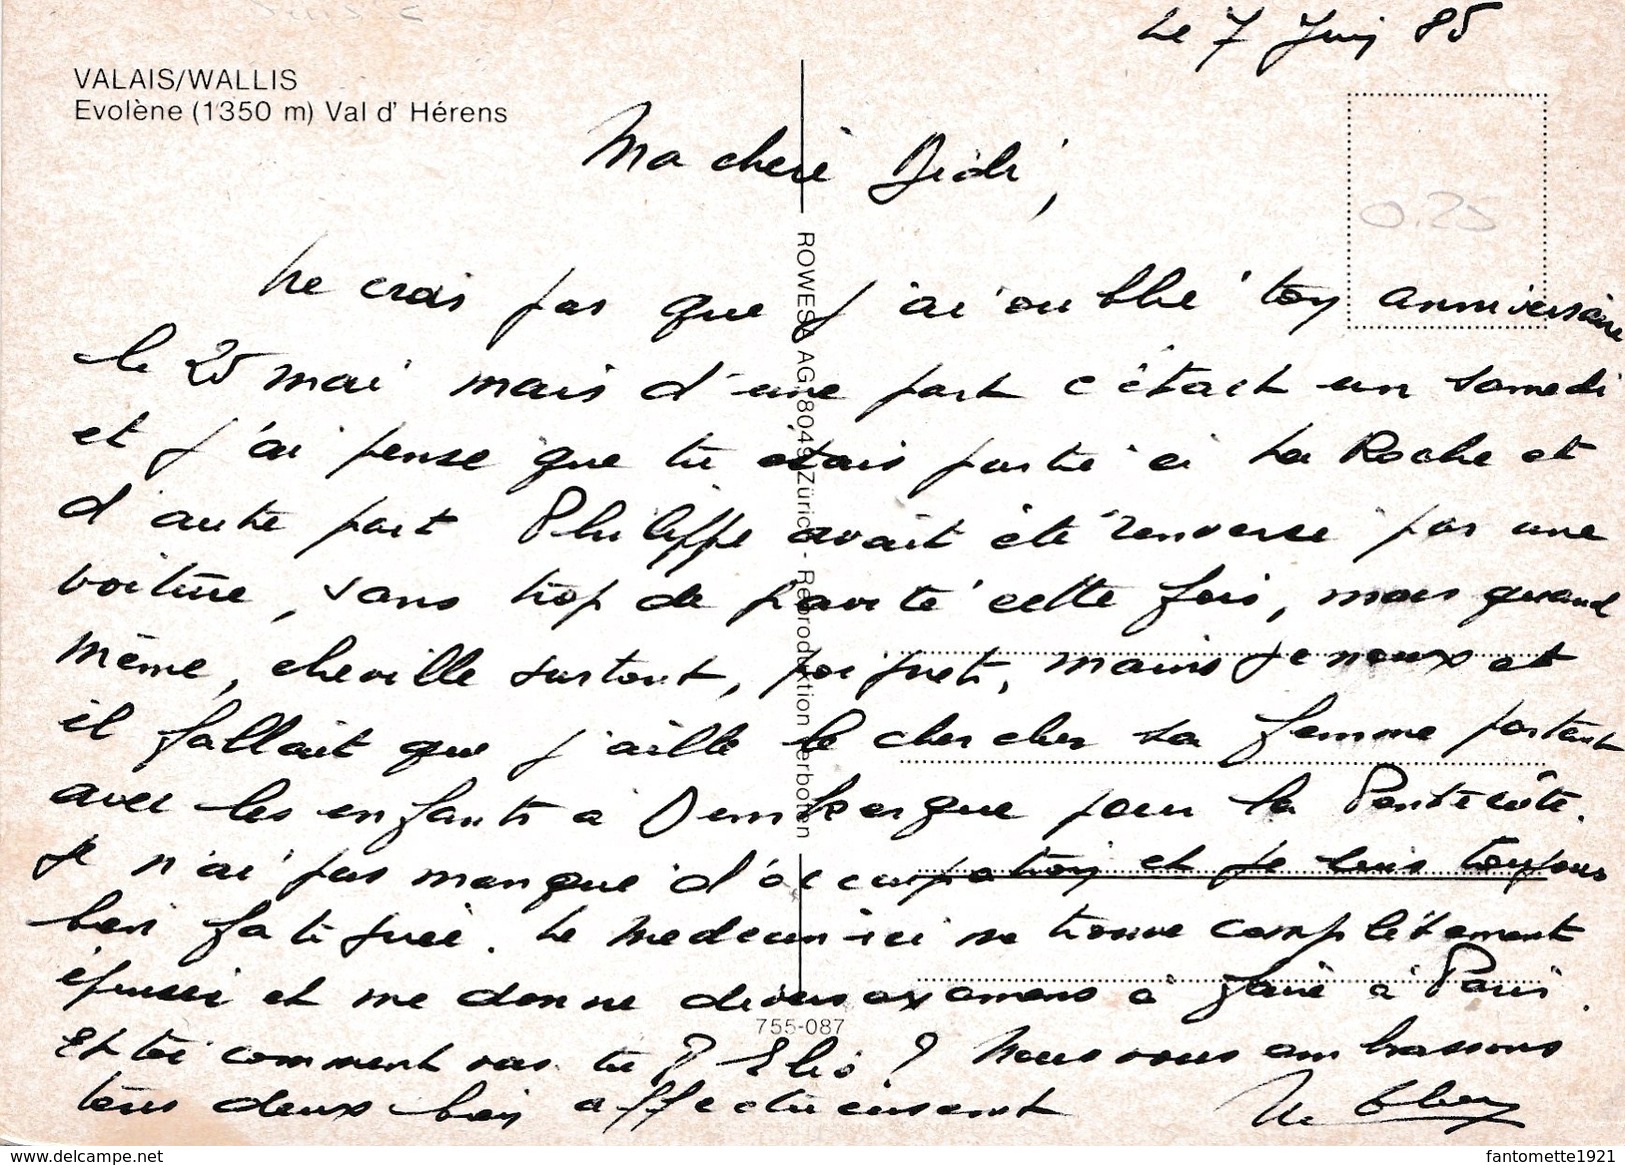 le 7 Juin 85
VALAIS/WALLIS
Evolène (1350 m) Val d' Hérens
0.25
Ma chère Didi,
Ne crois pas que j'ai oublié ton anniversaire
le 25 mai mais d'une part c'était un samedi
et j'ai pensé que tu étais partie à La Roche et
d'autre part Philippe avait été renversé par une
voiture, sans trop de gravité cette fois, mais quand
même, cheville surtout, poignets, mains genoux et
il fallait que j'aille le chercher sa femme partant
avec les enfants à Dunkerque pour la Pentecôte.
Je n'ai pas manqué d'occupation et je suis toujours
bien fatiguée. Le medecin ici me trouve complètement
épuisée et me donne divers examens à faire à Paris.
Et toi comment vas tu ? Elio ? Nous vous embrassons
tous deux bien affectueusement
ROWESA AG 8049 Zürich · Reproduktion verboten
755-087
fantomette1921
www.delcampe.net